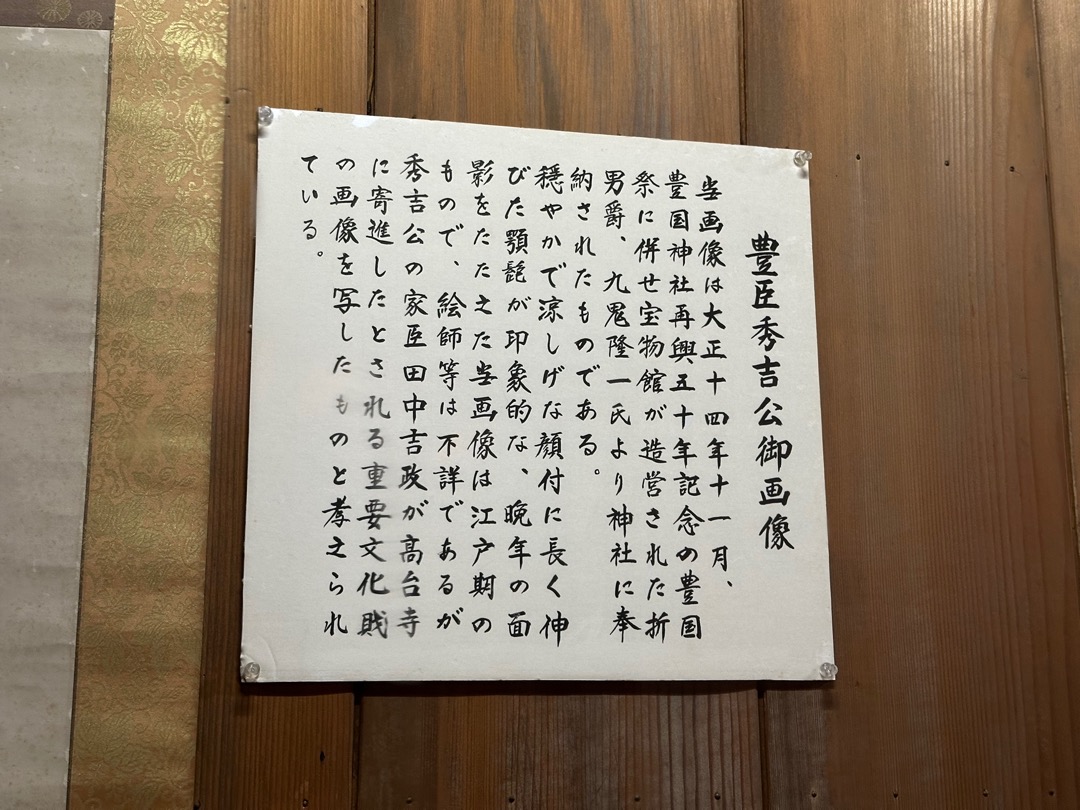 豊臣秀吉公御画像
当画像は大正十四年十一月、
豊国神社再興五十年記念の豊国
祭に併せ宝物館が造営された折
男爵、九鬼隆一氏より神社に奉
納されたものである。
穏やかで涼しげな顔付に長く伸
びた顎髭が印象的な、晩年の面
影をたたえた当画像は江戸期の
もので、絵師等は不詳であるが
秀吉公の家臣田中吉政が高台寺
に寄進したとされる重要文化財
の画像を写したものと考えられ
ている。